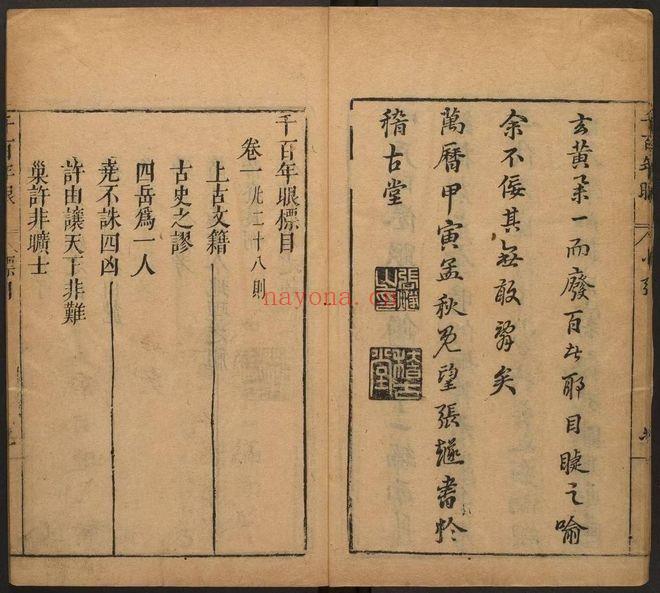 千百年眼 小引
玄黃一而廢百者耶目睫之喻
余不佞其無敢辭矣
萬曆甲寅孟秋既望張燧書於
稽古堂
張燧之印
稽古堂
千百年眼標目
卷一 凡二十八則
上古文籍
古史之謬
四岳爲一人
堯不誅四凶
許由讓天下非難
巢許非曠士
千百年眼 標目
nayona.cn